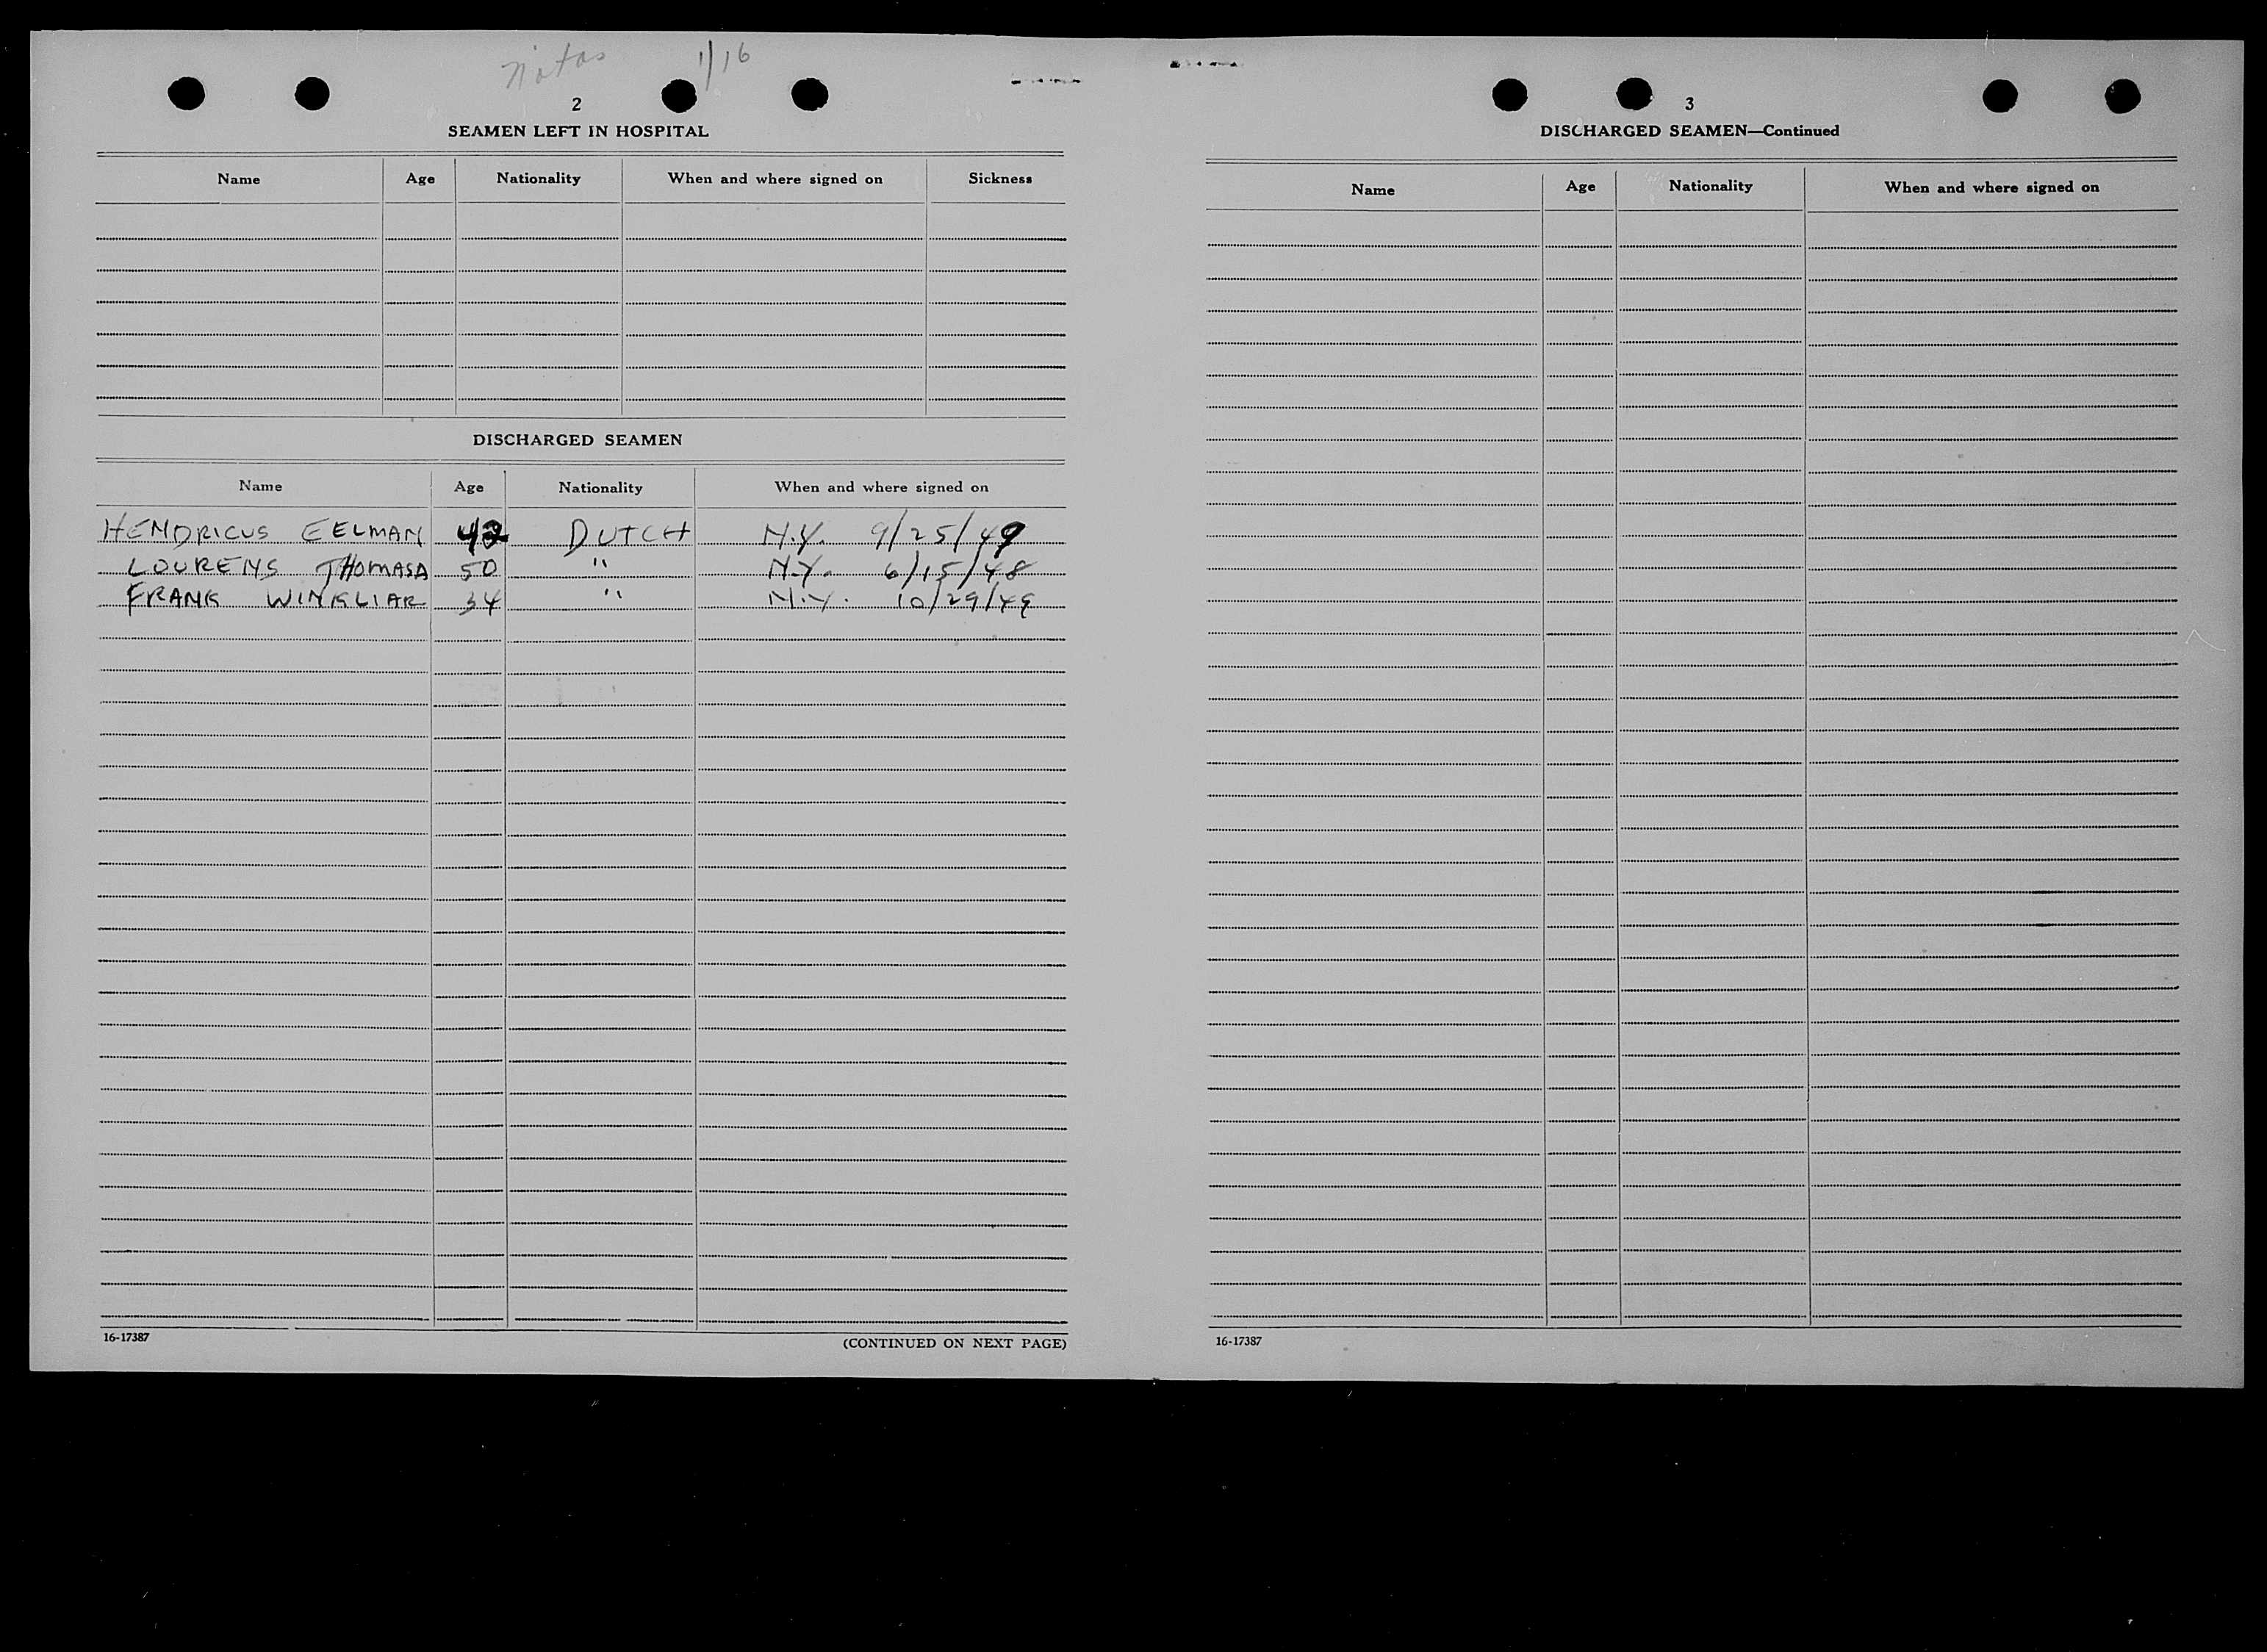 1/16
2
SEAMEN LEFT IN HOSPITAL
Name Age Nationality When and where signed on Sickness
DISCHARGED SEAMEN
Name Age Nationality When and where signed on
HENDRICUS EELMAN 42 DUTCH N.Y. 9/25/49
LOURENS THOMASA 50 " N.Y. 6/15/48
FRANK WINKLIAR 34 " N.Y. 10/29/49
16-17387
(CONTINUED ON NEXT PAGE)
3
DISCHARGED SEAMEN—Continued
Name Age Nationality When and where signed on
16-17387